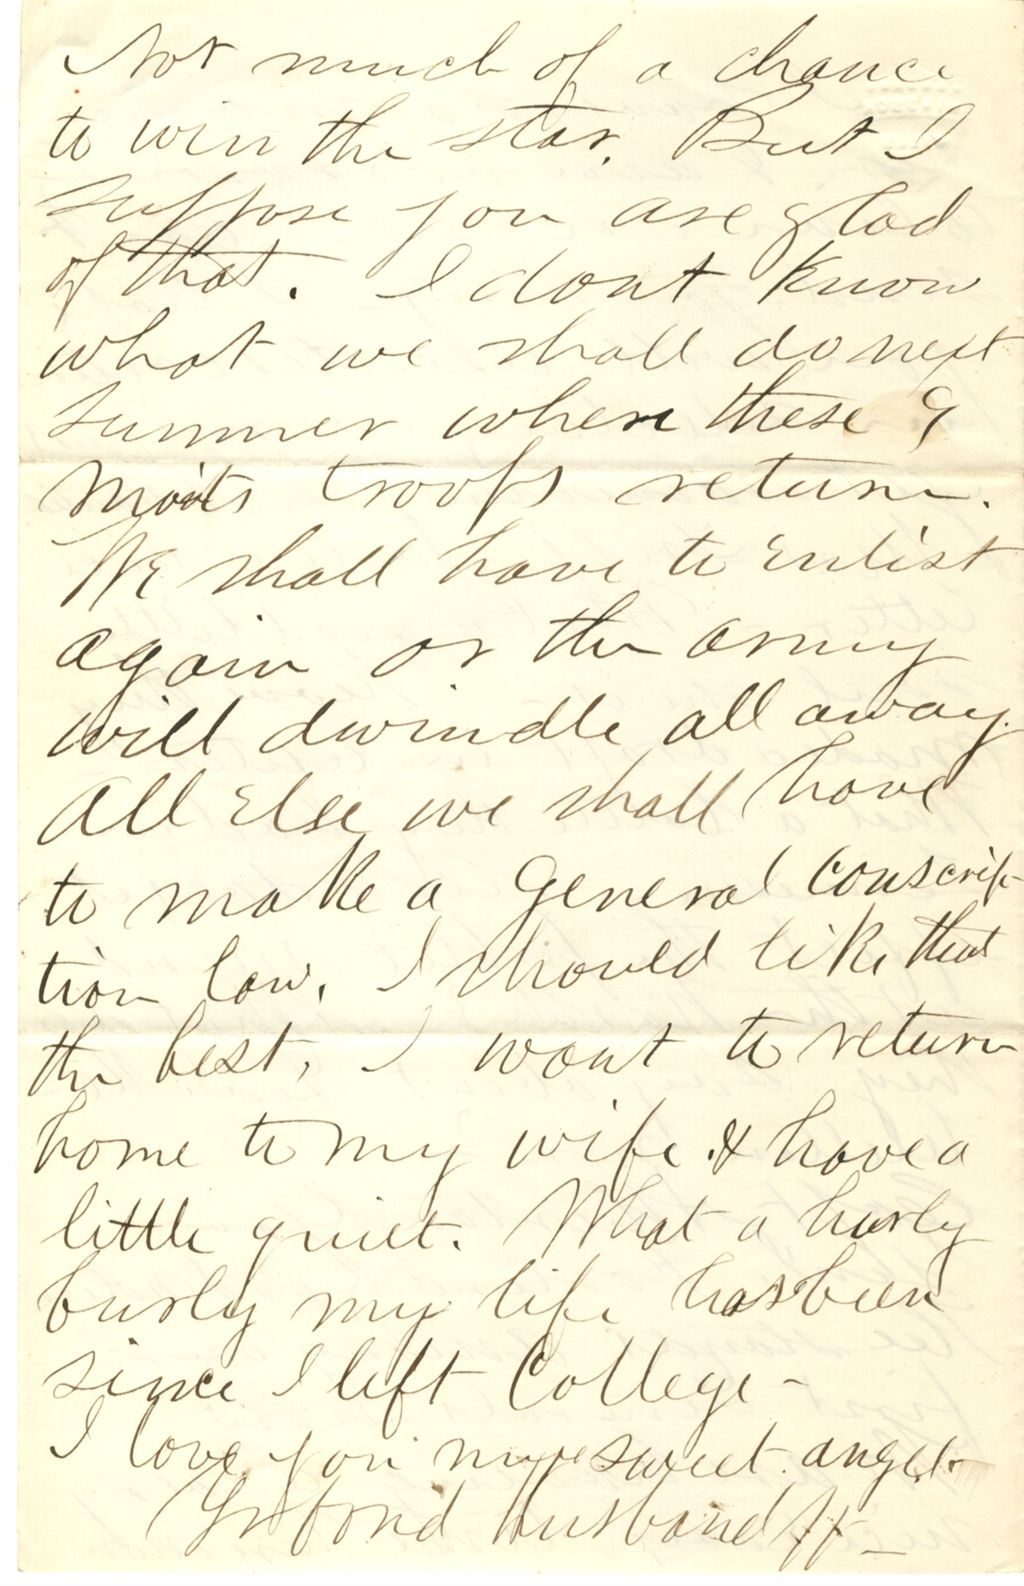 Not much of a chance
to win the star. But I
suppose you are glad
of that. I dont know
what we shall do next
summer when these 9
mo's troops return.
We shall have to enlist
again or the army
will dwindle all away.
All Else we shall have
to make a general conscrip-
tion law. I should like that
the best. I want to return
home to my wife & have a
little quiet. What a hurly
burly my life has been
since I left College -
I love you my sweet angel.
Yr fond husband